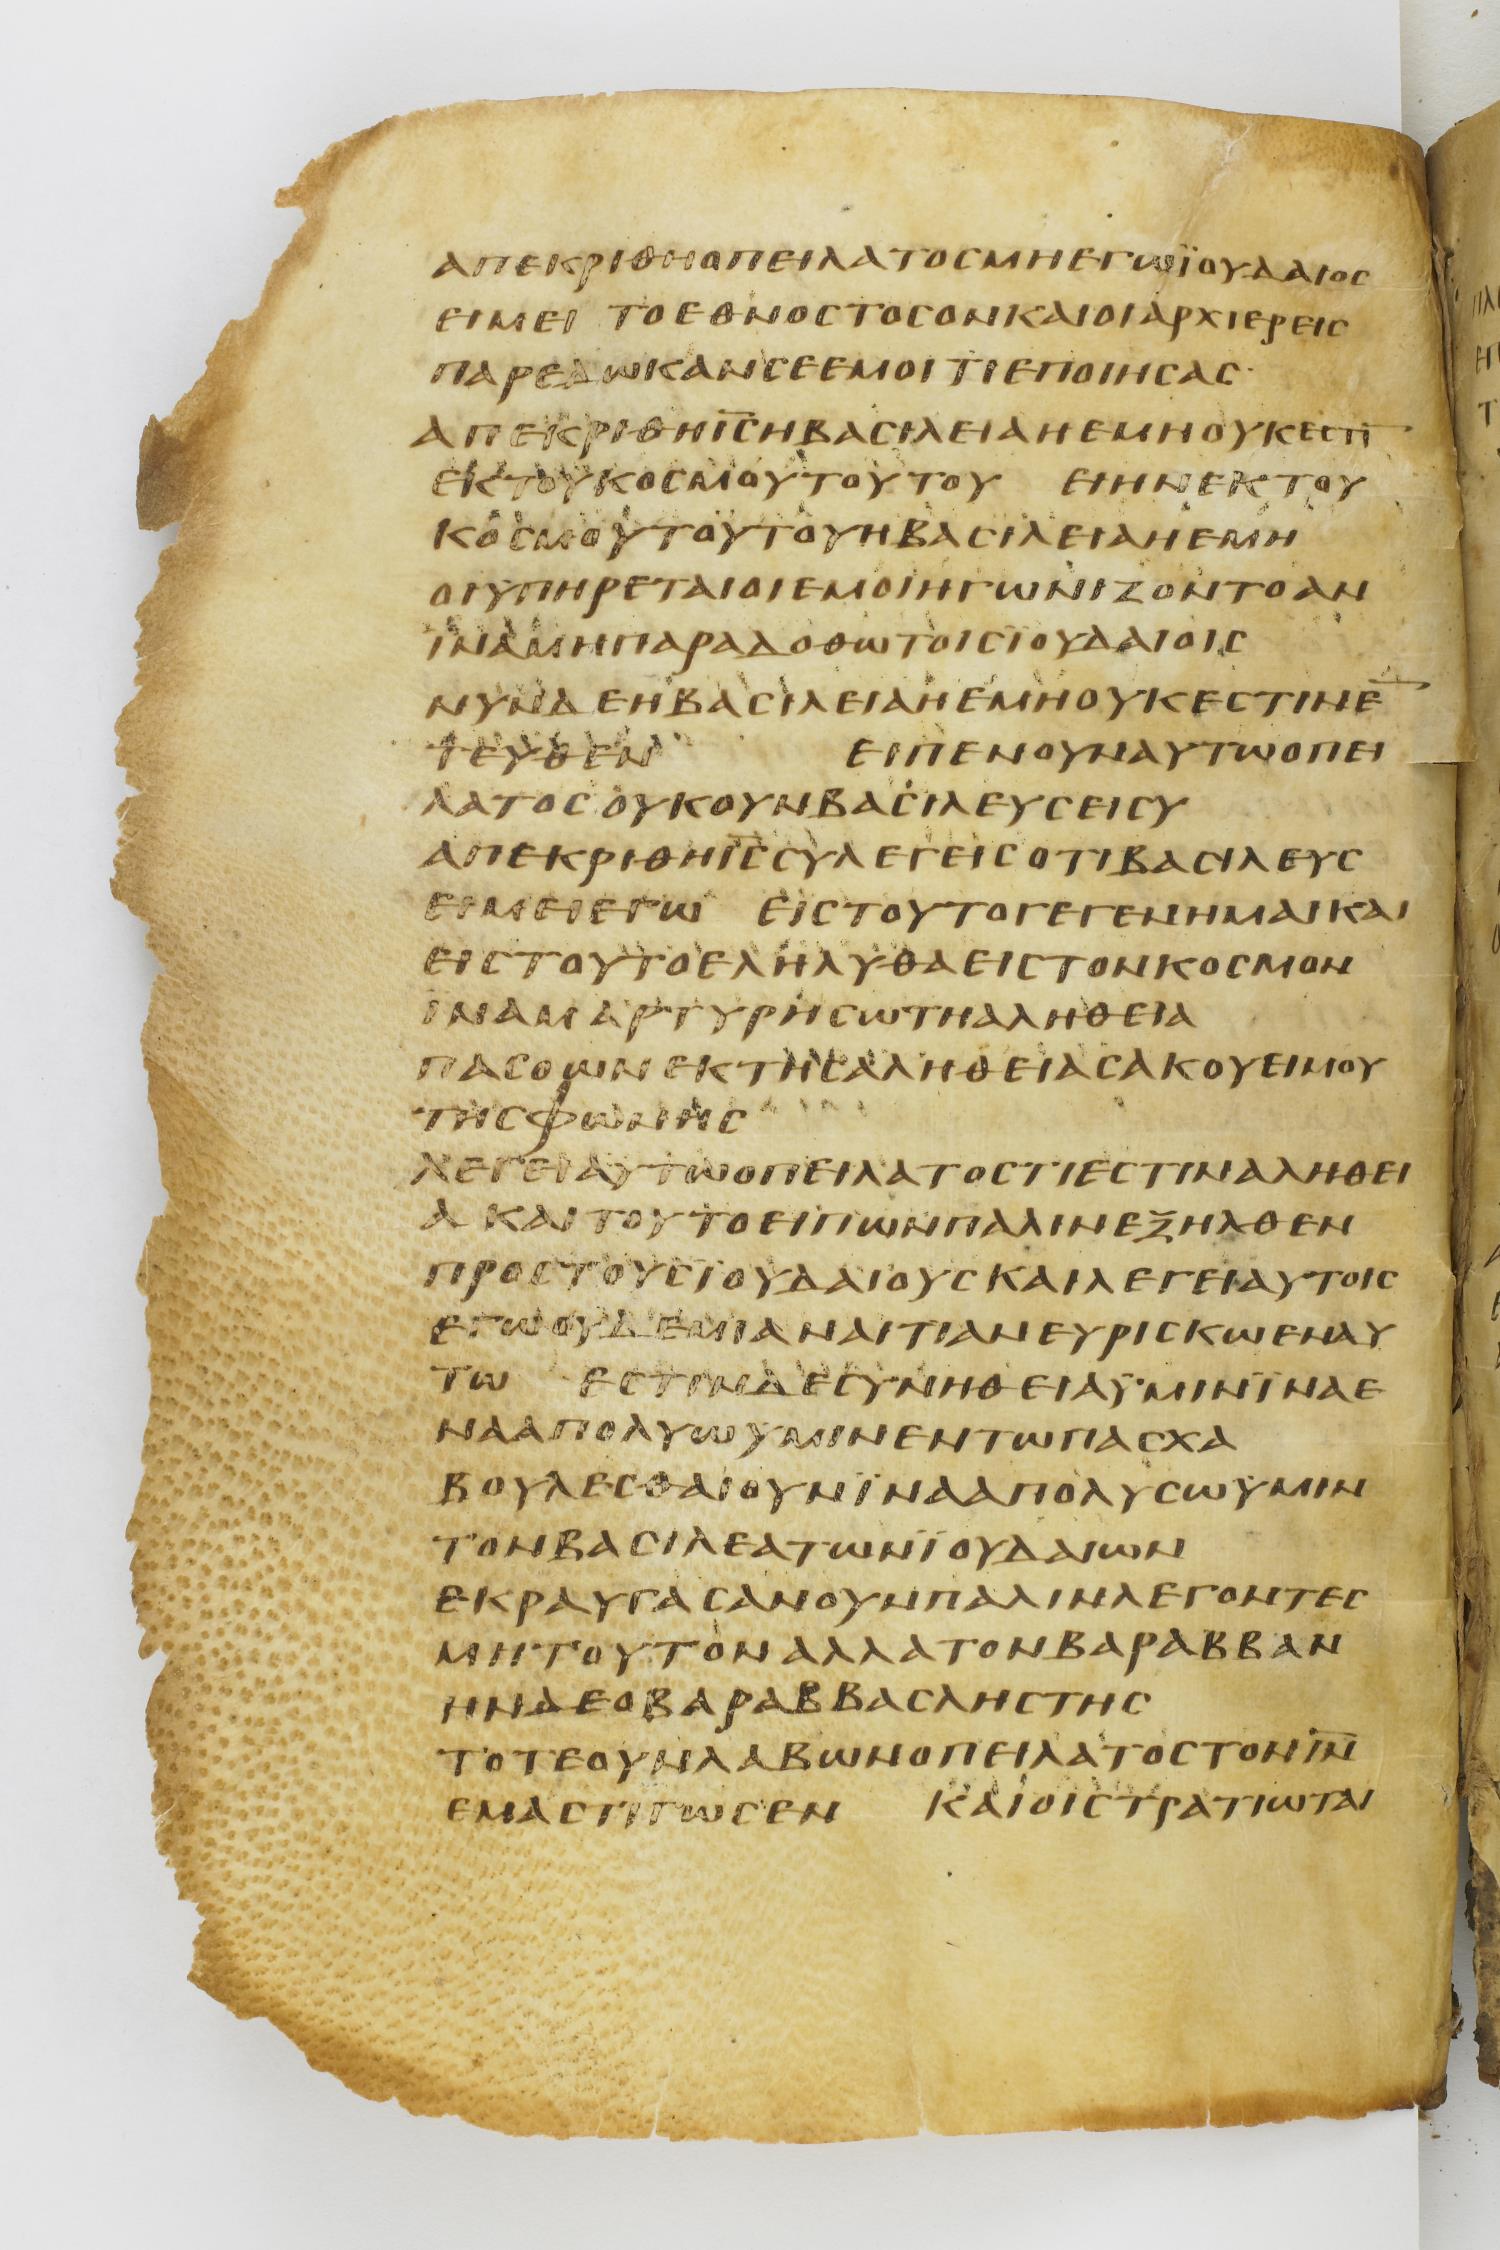 ΑΠΕΚΡΙΘΗΟΠΕΙΛΑΤΟΣΜΗΕΓΩΪΟΥΔΑΙΟΣ
ΕΙΜΕΙ ΤΟΕΘΝΟΣΤΟΣΟΝΚΑΙΟΙΑΡΧΙΕΡΕΙΣ
ΠΑΡΕΔΩΚΑΝΣΕΕΜΟΙΤΙΕΠΟΙΗΣΑΣ·
ΑΠΕΚΡΙΘΗΙ̅Σ̅ΗΒΑΣΙΛΕΙΑΗΕΜΗΟΥΚΕΣΤΙ̅
ΕΚΤΟΥΚΟΣΜΟΥΤΟΥΤΟΥ ΕΙΗΝΕΚΤΟΥ
ΚΟΣΜΟΥΤΟΥΤΟΥΗΒΑΣΙΛΕΙΑΗΕΜΗ
ΟΙΥΠΗΡΕΤΑΙΟΙΕΜΟΙΗΓΩΝΙΖΟΝΤΟΑΝ
ΪΝΑΜΗΠΑΡΑΔΟΘΩΤΟΙΣΪΟΥΔΑΙΟΙΣ
ΝΥΝΔΕΗΒΑΣΙΛΕΙΑΗΕΜΗΟΥΚΕΣΤΙΝΕ̅
ΤΕΥΘΕΝ ΕΙΠΕΝΟΥΝΑΥΤΩΟΠΕΙ
ΛΑΤΟΣΟΥΚΟΥΝΒΑΣΙΛΕΥΣΕΙΣΥ
ΑΠΕΚΡΙΘΗΙ̅Σ̅ΣΥΛΕΓΕΙΣΟΤΙΒΑΣΙΛΕΥΣ
ΕΙΜΕΙΕΓΩ ΕΙΣΤΟΥΤΟΓΕΓΕΝΗΜΑΙΚΑΙ
ΕΙΣΤΟΥΤΟΕΛΗΛΥΘΑΕΙΣΤΟΝΚΟΣΜΟΝ
ΪΝΑΜΑΡΤΥΡΗΣΩΤΗΑΛΗΘΕΙΑ
ΠΑΣΟΩΝΕΚΤΗΣΑΛΗΘΕΙΑΣΑΚΟΥΕΙΜΟΥ
ΤΗΣΦΩΝΗΣ
ΛΕΓΕΙΑΥΤΩΟΠΕΙΛΑΤΟΣΤΙΕΣΤΙΝΑΛΗΘΕΙ
Α ΚΑΙΤΟΥΤΟΕΙΠΩΝΠΑΛΙΝΕΞΗΛΘΕΝ
ΠΡΟΣΤΟΥΣΪΟΥΔΑΙΟΥΣΚΑΙΛΕΓΕΙΑΥΤΟΙΣ
ΕΓΩΟΥΔΕΜΙΑΝΑΙΤΙΑΝΕΥΡΙΣΚΩΕΝΑΥ
ΤΩ ΕΣΤΙΝΔΕΣΥΝΗΘΕΙΑΫΜΙΝΪΝΑΕ
ΝΑΑΠΟΛΥΩΫΜΙΝΕΝΤΩΠΑΣΧΑ
ΒΟΥΛΕΣΘΑΙΟΥΝΪΝΑΑΠΟΛΥΣΩΫΜΙΝ
ΤΟΝΒΑΣΙΛΕΑΤΩΝΪΟΥΔΑΙΩΝ
ΕΚΡΑΥΓΑΣΑΝΟΥΝΠΑΛΙΝΛΕΓΟΝΤΕΣ
ΜΗΤΟΥΤΟΝΑΛΛΑΤΟΝΒΑΡΑΒΒΑΝ
ΗΝΔΕΟΒΑΡΑΒΒΑΣΛΗΣΤΗΣ
ΤΟΤΕΟΥΝΛΑΒΩΝΟΠΕΙΛΑΤΟΣΤΟΝΙ̅Ν̅
ΕΜΑΣΤΙΓΩΣΕΝ ΚΑΙΟΙΣΤΡΑΤΙΩΤΑΙ